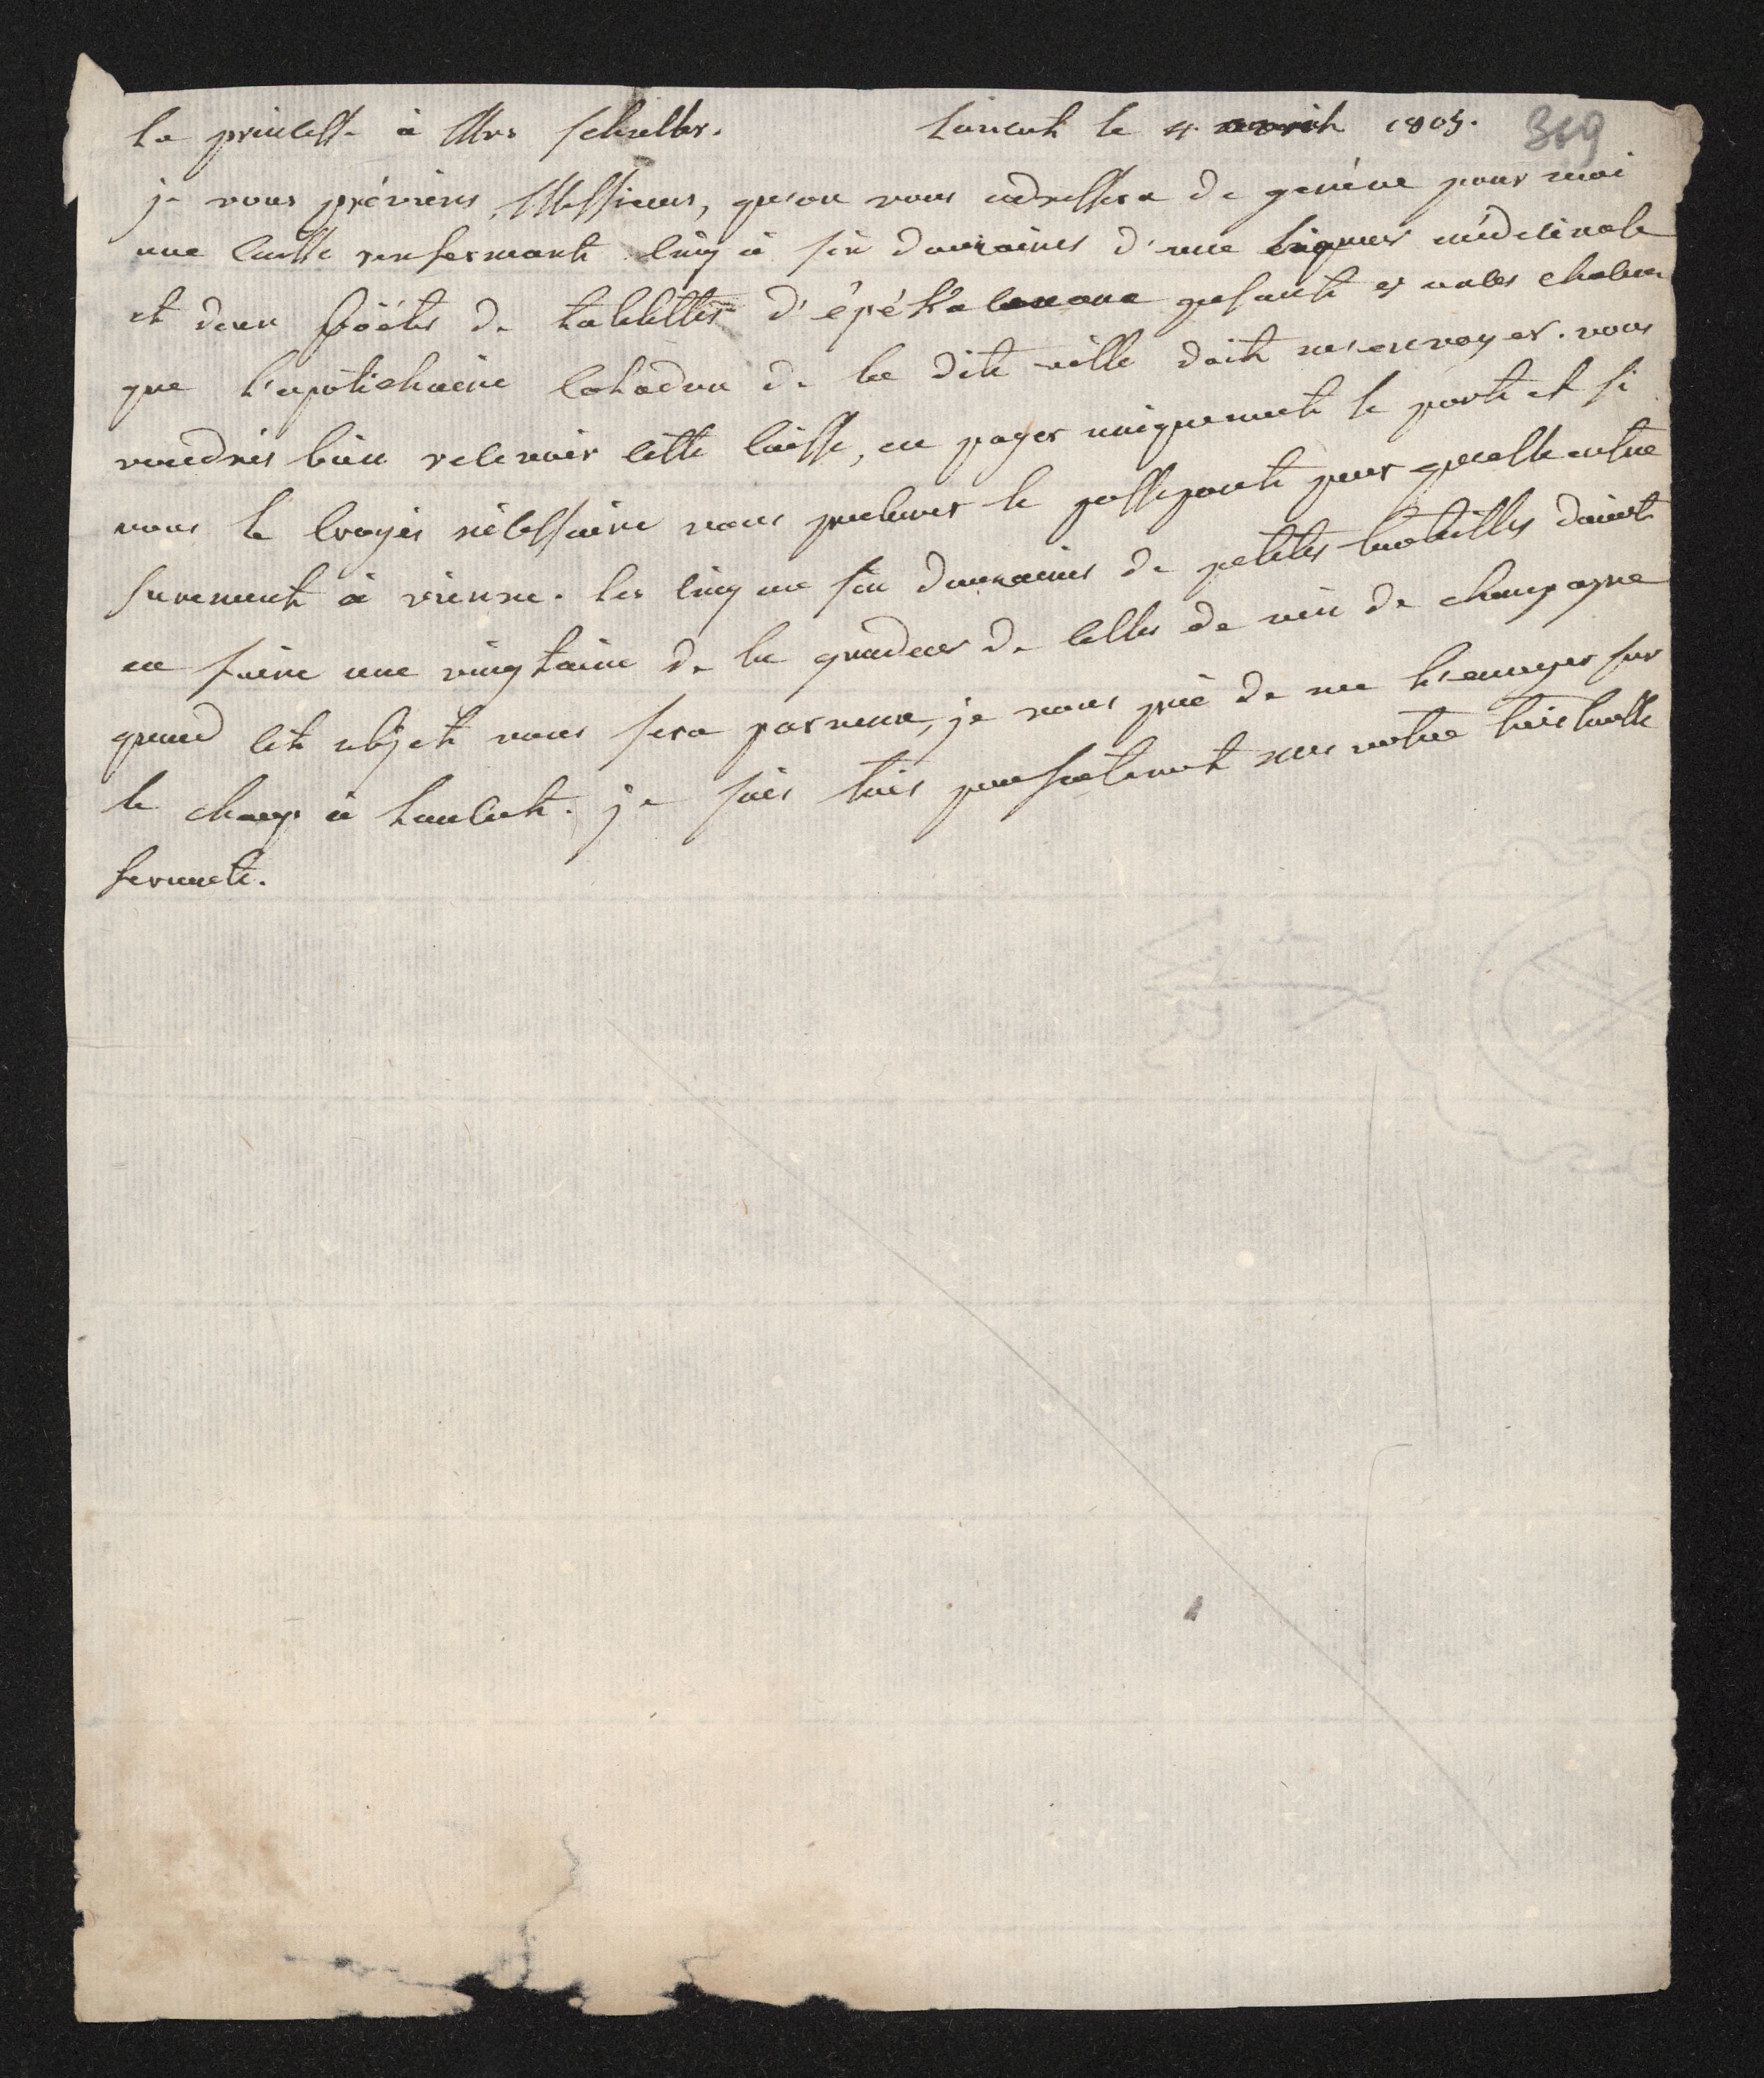 la princesse à Mrs schuller. Lancut le 4 avril 1805. 319
je vous préviens, Messieurs, qu'on vous adressera de genéve pour moi
une caisse renfermant cinq à six douzaines d'une liqueur médécinale
et deux boëtes de tablettes d'épékakouana
que l'apotichaire Coladon de la dite ville doit m'envoyer. vous
voudrés bien recevoir cette caisse, en payer uniquement le port et si
vous le croyés nécessaire vous procurer le passeport pour qu'elle entre
surement à vienne. les cinq ou six douzaines de petites bouteilles doivent
en faire une vingtaine de la grandeur de celles de vin de champagne
quand cet objet vous sera parvenu, je vous prie de me l'envoyer sur
le champ à Lancut. je suis très parfaitement votre très humble
servante.